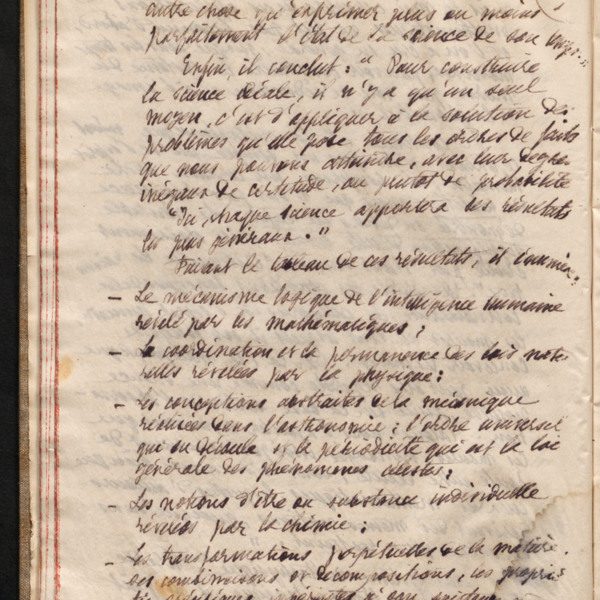 autre chose qu'exprimer plus ou moins
parfaitement l'état de la science de son temps."
Enfin, il conclut : " Pour construire
la science idéale, il n'y a qu'un seul
moyen, c'est d'appliquer à la solution des
problèmes qu'elle pose tous les ordres de faits
que nous pouvons atteindre, avec leur degrés
inégaux de certitude, ou plutôt de probabilité
"Ici, chaque science apportera ses résultats
les plus généraux."
Faisant le tableau de ces résultats, il énumère :
- Le mécanisme logique de l'intelligence humaine
révélé par les mathématiques ;
- la coordination et la permanence des lois natu-
relles révélées par la physique ;
- Les conceptions abstraites de la mécanique
réalisées dans l'astronomie ; l'ordre universel
qui en découle et la périodicité qui est la loi
générale des phénomènes célestes ;
- Les notions d'être ou substance individuelle
révélées par la chimie ;
- Les transformations perpétuelles de la matière,
ses combinaisons et décompositions, ses proprié-